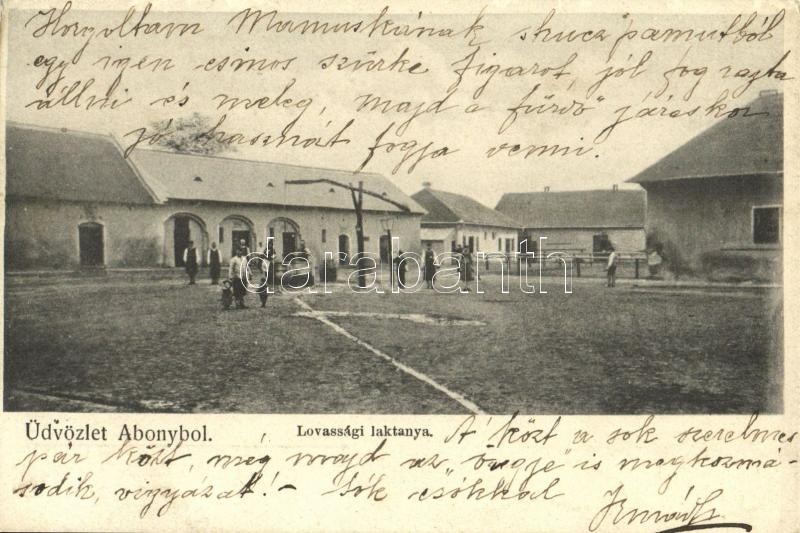 Horgoltam Mamuskának stucz pamutból
egy igen csinos szürke figarot, jól fog rajta
állni és meleg, majd a "fürdő" járáskor
jó hasznát fogja venni.
darabanth
.com
Üdvözlet Abonyból.
Lovassági laktanya.
A közt a sok szerelmes
pár közt, még majd az is megkozmá-
sodik, vigyázat! - Sok csókkal